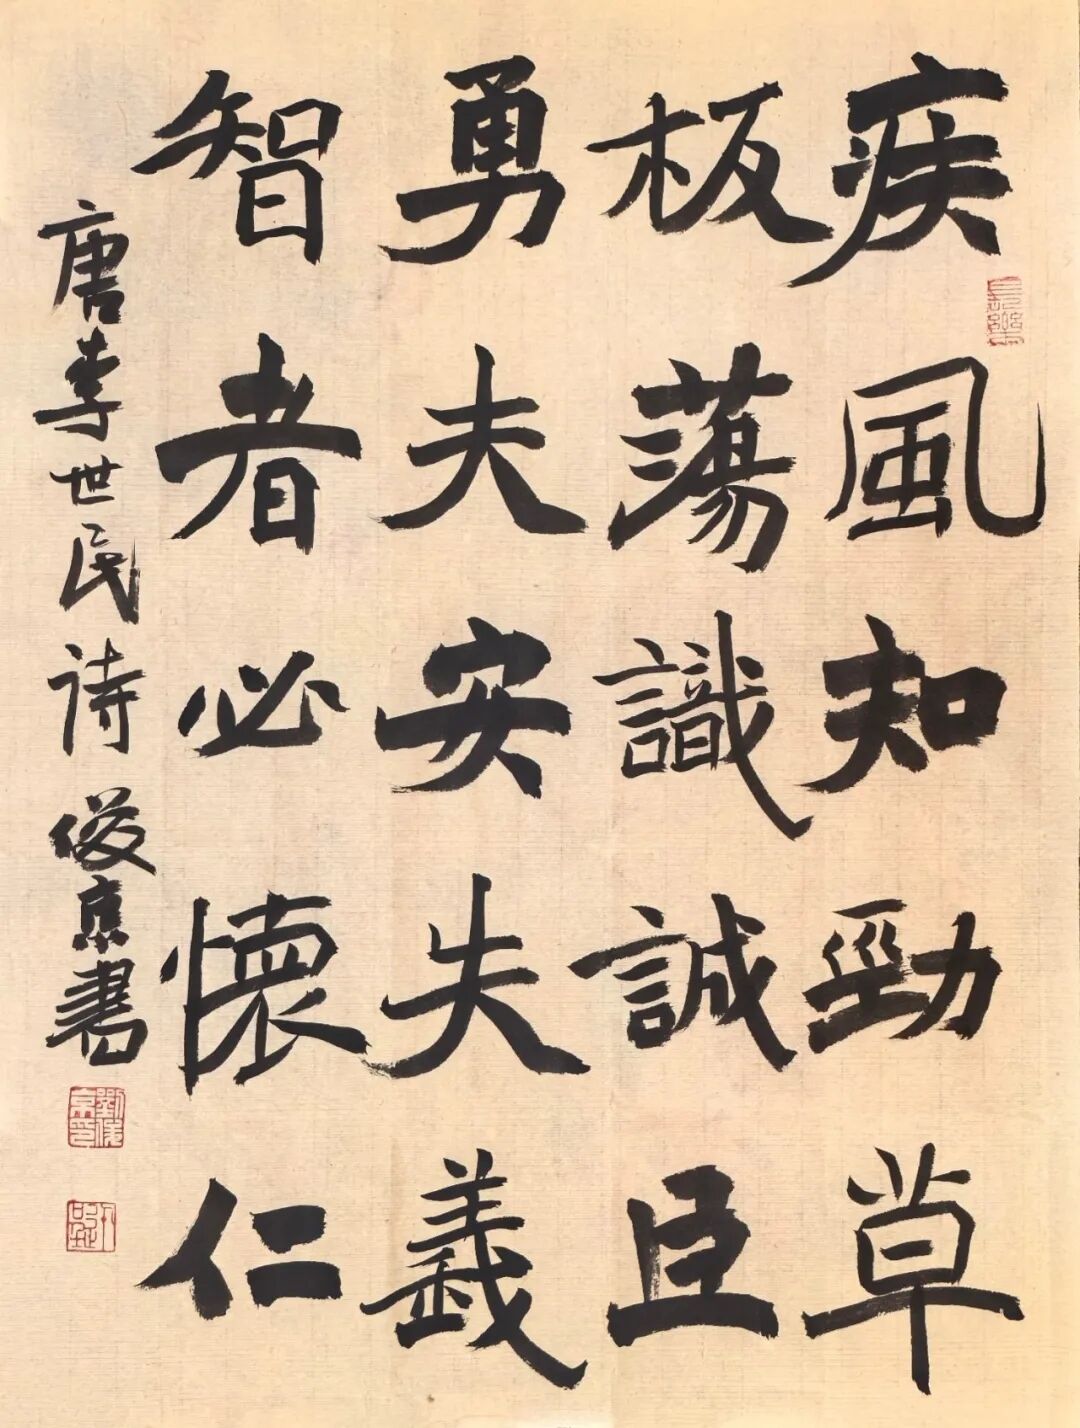 疾風知勁草
板蕩識誠臣
勇夫安失義
智者必懷仁
唐李世民诗 俊京書
劉俊京印